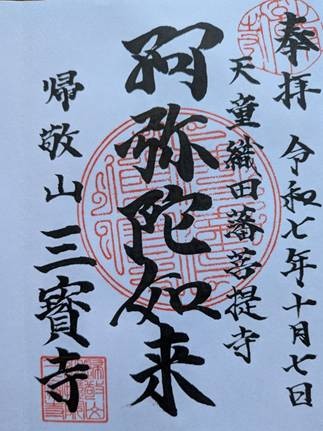 奉拝 令和七年十月七日
天童織田藩菩提寺
阿弥陀如来
帰敬山三寳寺